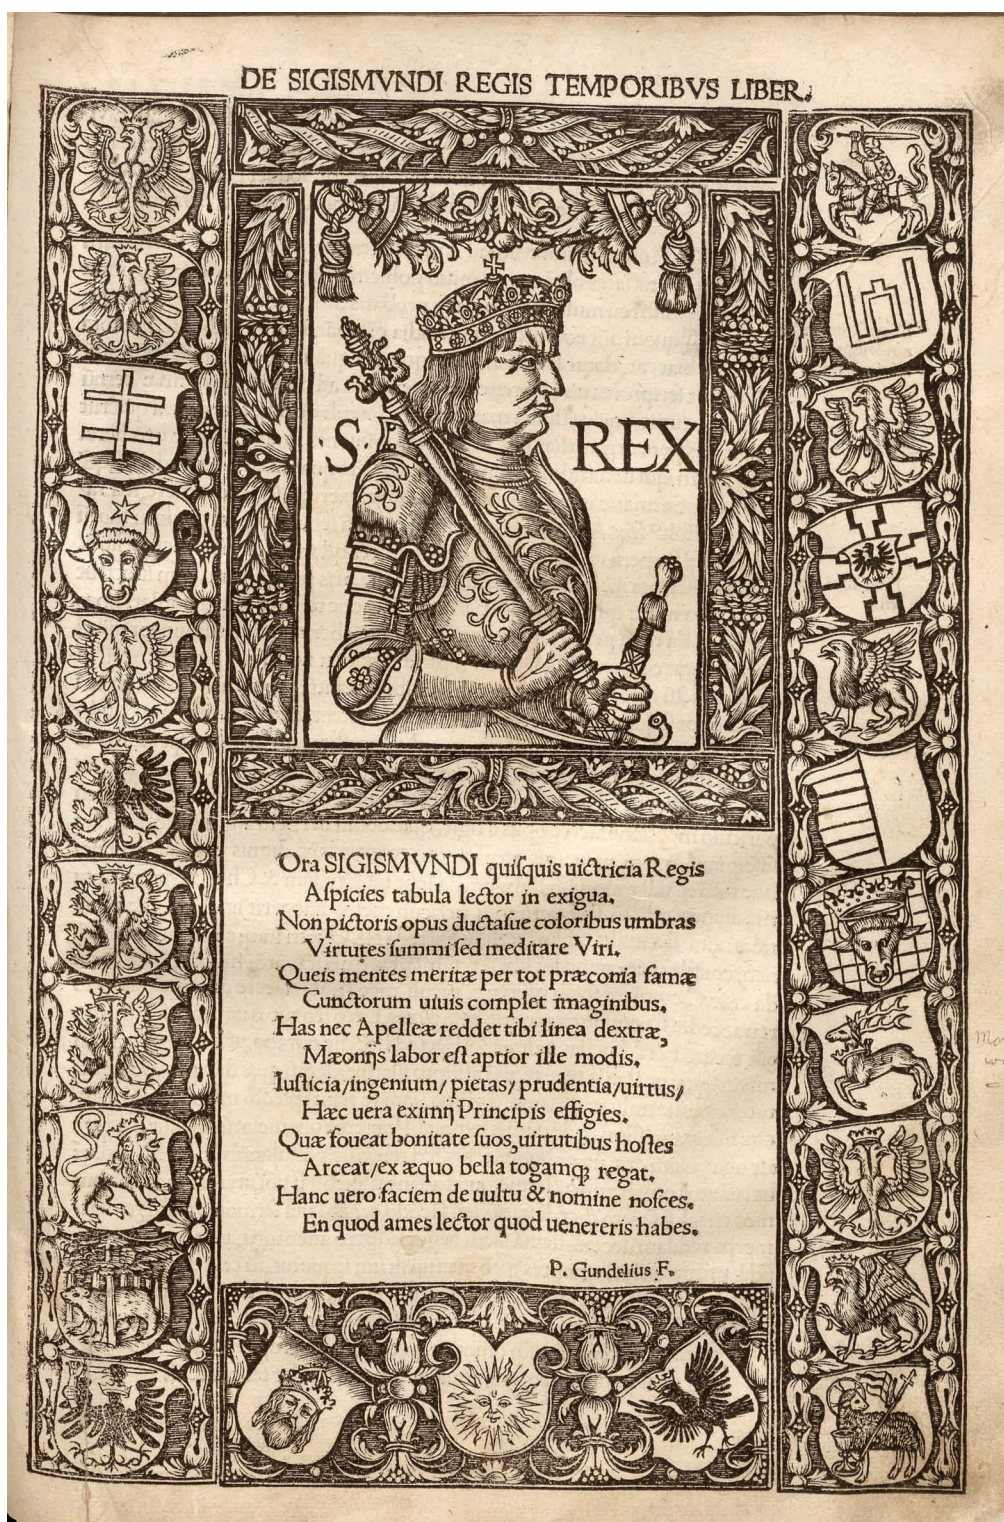 DE SIGISMVNDI REGIS TEMPORIBVS LIBER.
·S· REX
Ora SIGISMVNDI quiſquis uictricia Regis
Aſpicies tabula lector in exigua.
Non pictoris opus ductaſue coloribus umbras
Virtutes ſummi ſed meditare Viri.
Queis mentes meritæ per tot præconia famæ
Cunctorum uiuis complet imaginibus.
Has nec Apelleæ reddet tibi linea dextræ,
Mæonijs labor eſt aptior ille modis.
Iuſticia/ingenium/ pietas/ prudentia/uirtus/
Hæc uera eximij Principis effigies.
Quæ foueat bonitate ſuos,uirtutibus hoſtes
Arceat/ex æquo bella togamqꝫ regat.
Hanc uero faciem de uultu & nomine noſces.
En quod ames lector quod uenereris habes.
P. Gundelius F.